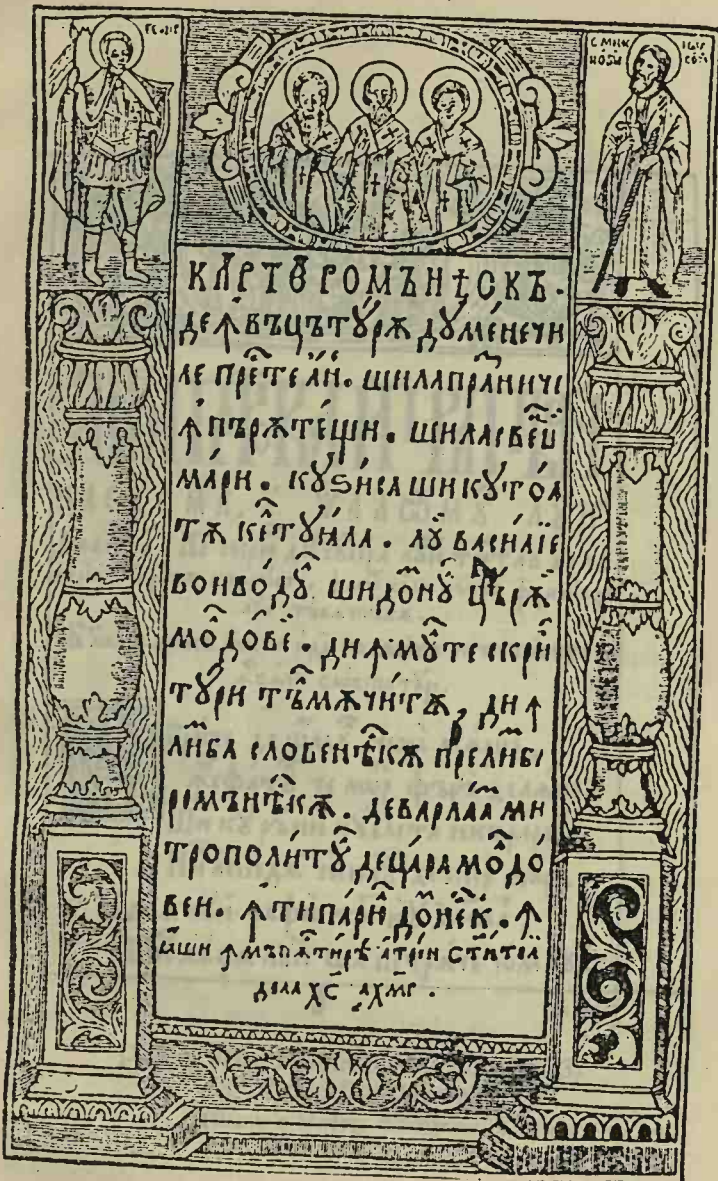 ГЕОРГ
С МНК
НОВЫ
КАРТѸ РОМѪНѢСКЪ·
ДЕꙞ ВЪЦЪТꙋ́РѪ ДꙋМЕ́НЕЧИ
ЛЕ ПРЕ́СТЕАН҃. ШИЛАПРА́ЗНИЧЕ
ꙞПЪРѪТЕ́ЩИ. ШИЛАСВЕ́ЦЇ
МА́РИ. КꙋЅИ́СА ШИКꙋТОА́
ТѪ КЕ҆ЛТꙋА́ЛА. Лꙋ҆ ВАСИ́ЛІЕ
ВОИВО́Дꙋ҆Л ШИДО́МНꙋ҆Л ЦѢ́РЇѪ
МО҆ЛДО́ВЕЇ. ДИꙞМꙋ҆ЛТЕ СКРИ́П
ТꙋРИ ТЪ҆ЛМѪЧИ́ТѪ, ДИꙞ
ЛИ́МБА СЛОВЕНѢ́СКѪ ПРЕЛИ́МБА
РОМѪНѢ́СКѪ. ДЕВАРЛАА́М МИ
ТРОПОЛИ́Тꙋ҆Л ДЕЦА́РА МО҆ЛДО́
ВЕИ. ꙞТИПА́РЮ҆Л ДО҆МНЕ́СК. Ꙟ
ꙞМЪНЪ҆СТИРѢ АТРЇИ СТ҃ИТЕЛИ
ДЕЛА ХС҃ ҂АХМГ.